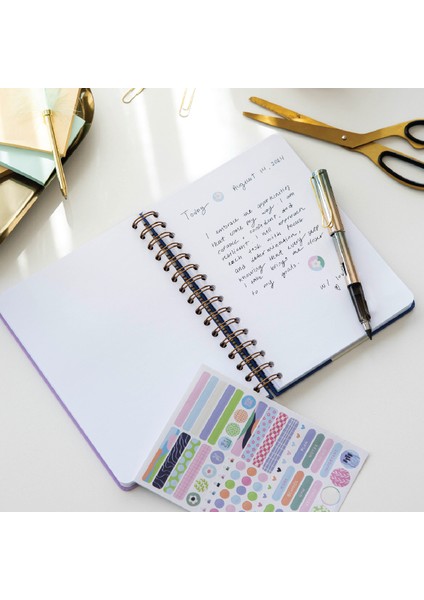 Today August 14, 2024
I embrace the opportunities
that come my way. I am
resilient. I will approach
each task with focus
and determination,
knowing that every step
I take brings me closer
to my goals.